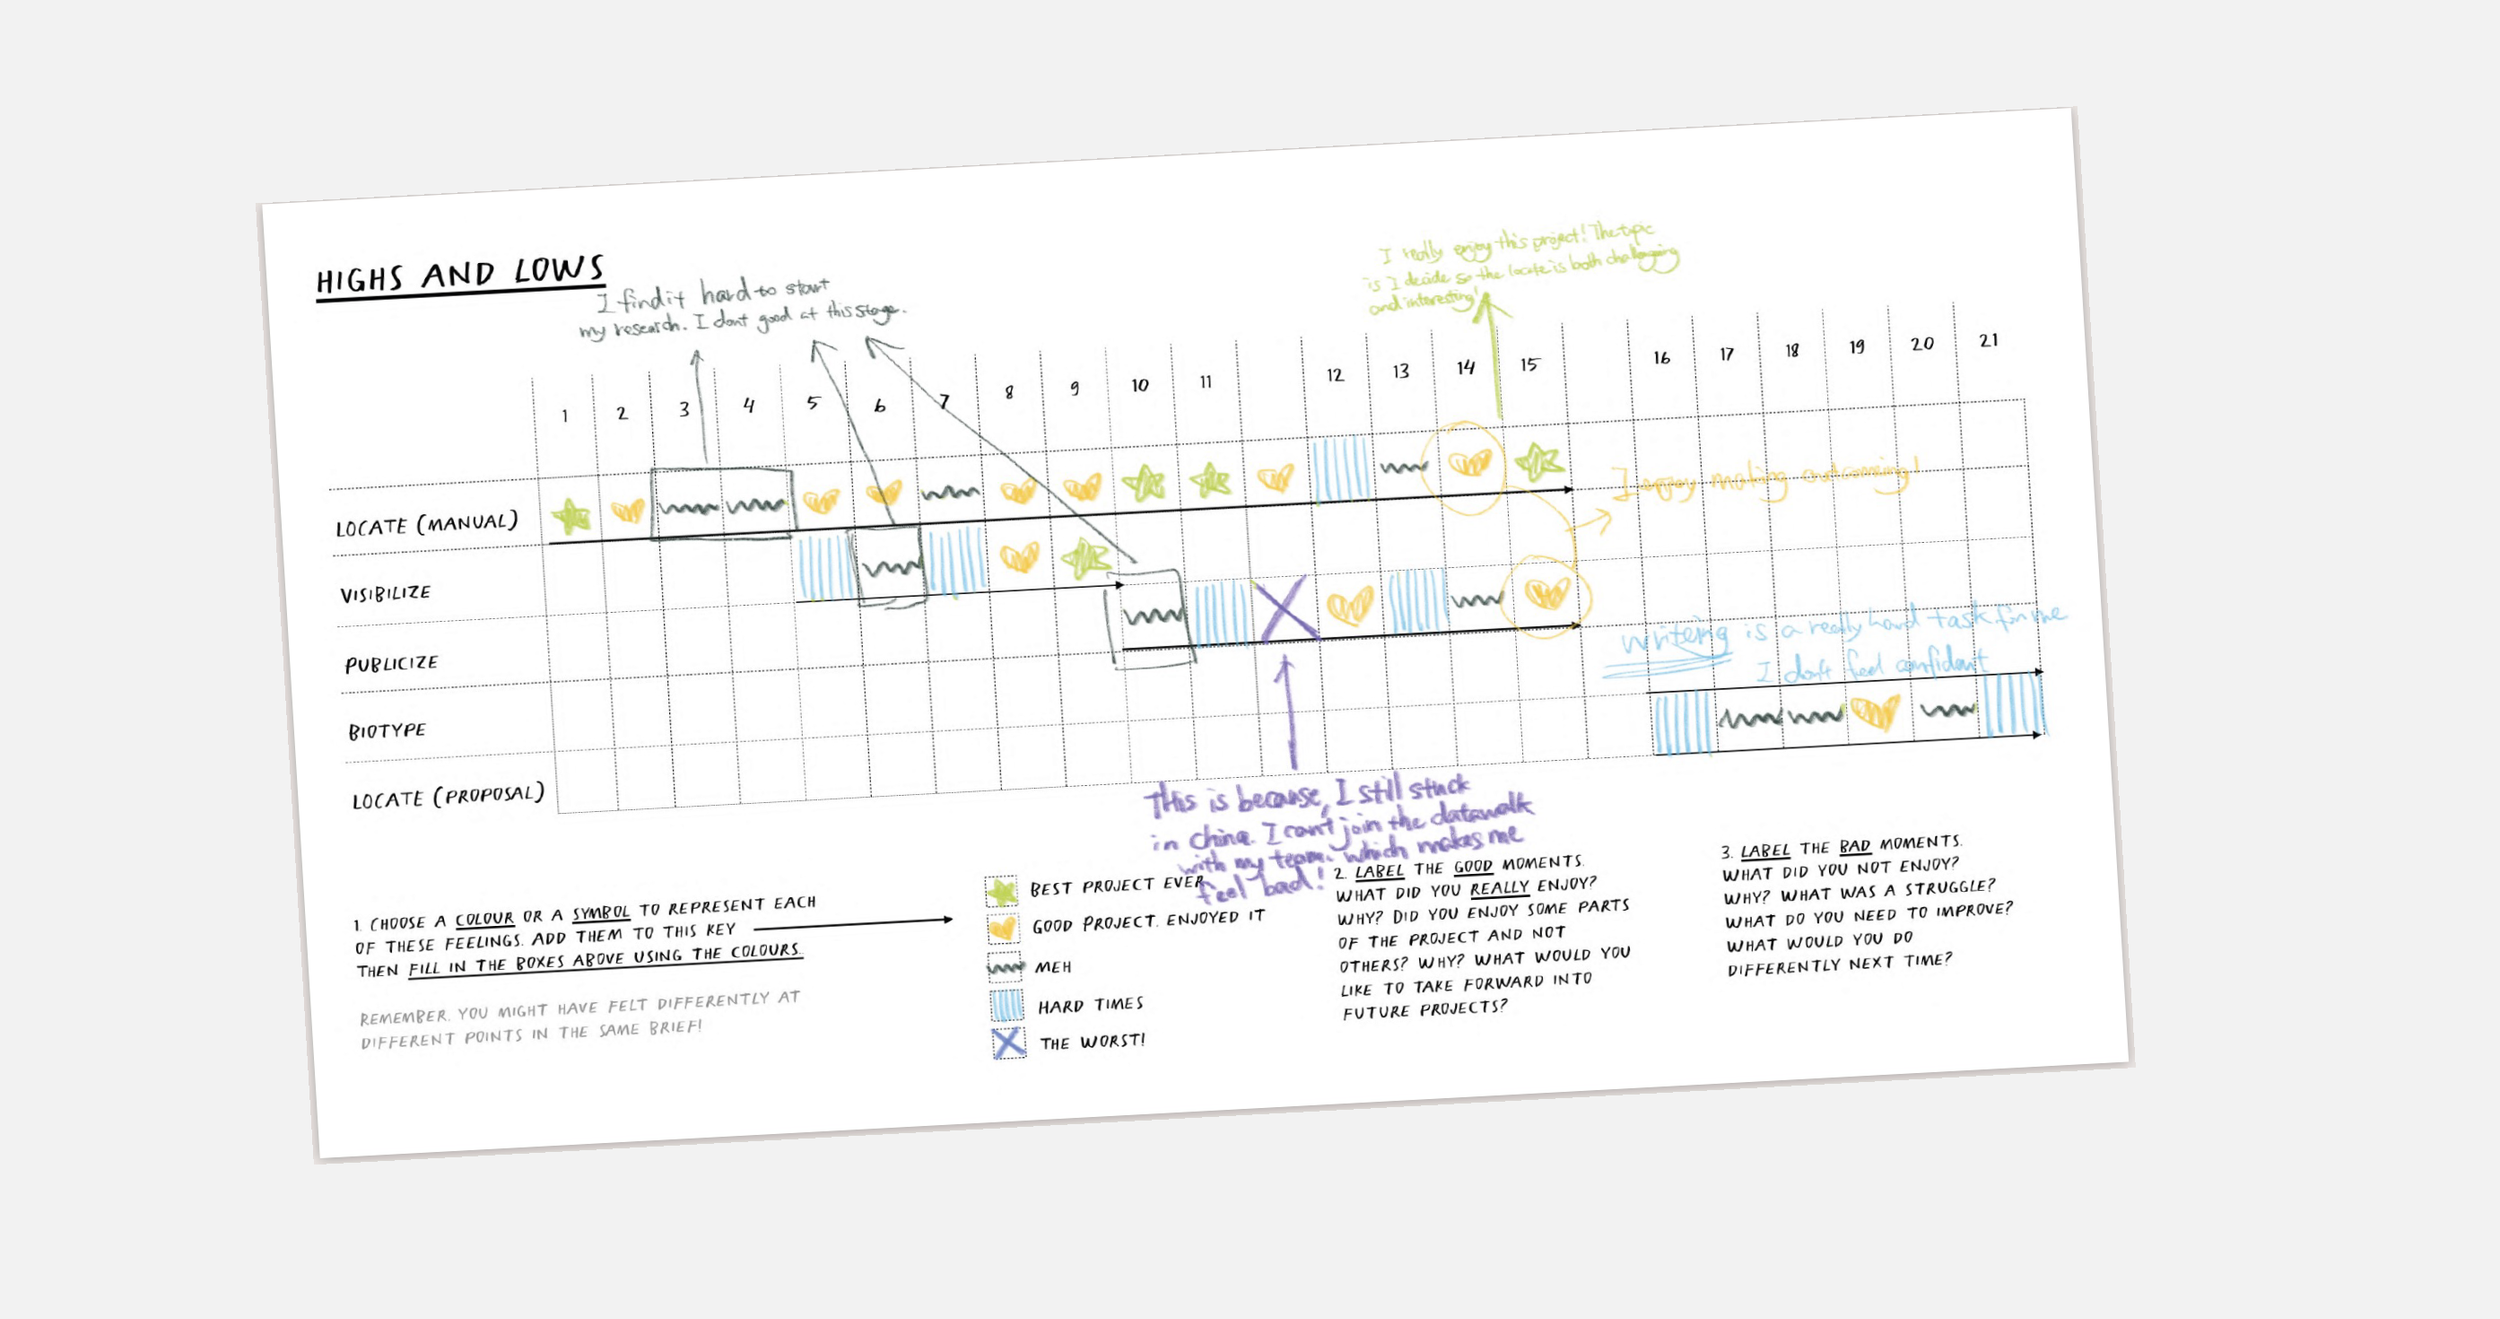 HIGHS AND LOWS
I find it hard to start
my research. I dont good at this stage.
I really enjoy this project! The topic
is I decide so the locate is both challenging
and interesting!
1 2 3 4 5 6 7 8 9 10 11 12 13 14 15 16 17 18 19 20 21
LOCATE (MANUAL)
I enjoy making outcoming!
VISIBILIZE
PUBLICIZE
writeing is a really hard task for me
I don't feel confidant
BIOTYPE
LOCATE (PROPOSAL)
This is because, I still stuck
in China. I can't join the datawalk
with my team. which makes me
feel bad!
1. CHOOSE A COLOUR OR A SYMBOL TO REPRESENT EACH
OF THESE FEELINGS. ADD THEM TO THIS KEY
THEN FILL IN THE BOXES ABOVE USING THE COLOURS.
REMEMBER. YOU MIGHT HAVE FELT DIFFERENTLY AT
DIFFERENT POINTS IN THE SAME BRIEF!
BEST PROJECT EVER
GOOD PROJECT. ENJOYED IT
MEH
HARD TIMES
THE WORST!
2. LABEL THE GOOD MOMENTS.
WHAT DID YOU REALLY ENJOY?
WHY? DID YOU ENJOY SOME PARTS
OF THE PROJECT AND NOT
OTHERS? WHY? WHAT WOULD YOU
LIKE TO TAKE FORWARD INTO
FUTURE PROJECTS?
3. LABEL THE BAD MOMENTS.
WHAT DID YOU NOT ENJOY?
WHY? WHAT WAS A STRUGGLE?
WHAT DO YOU NEED TO IMPROVE?
WHAT WOULD YOU DO
DIFFERENTLY NEXT TIME?